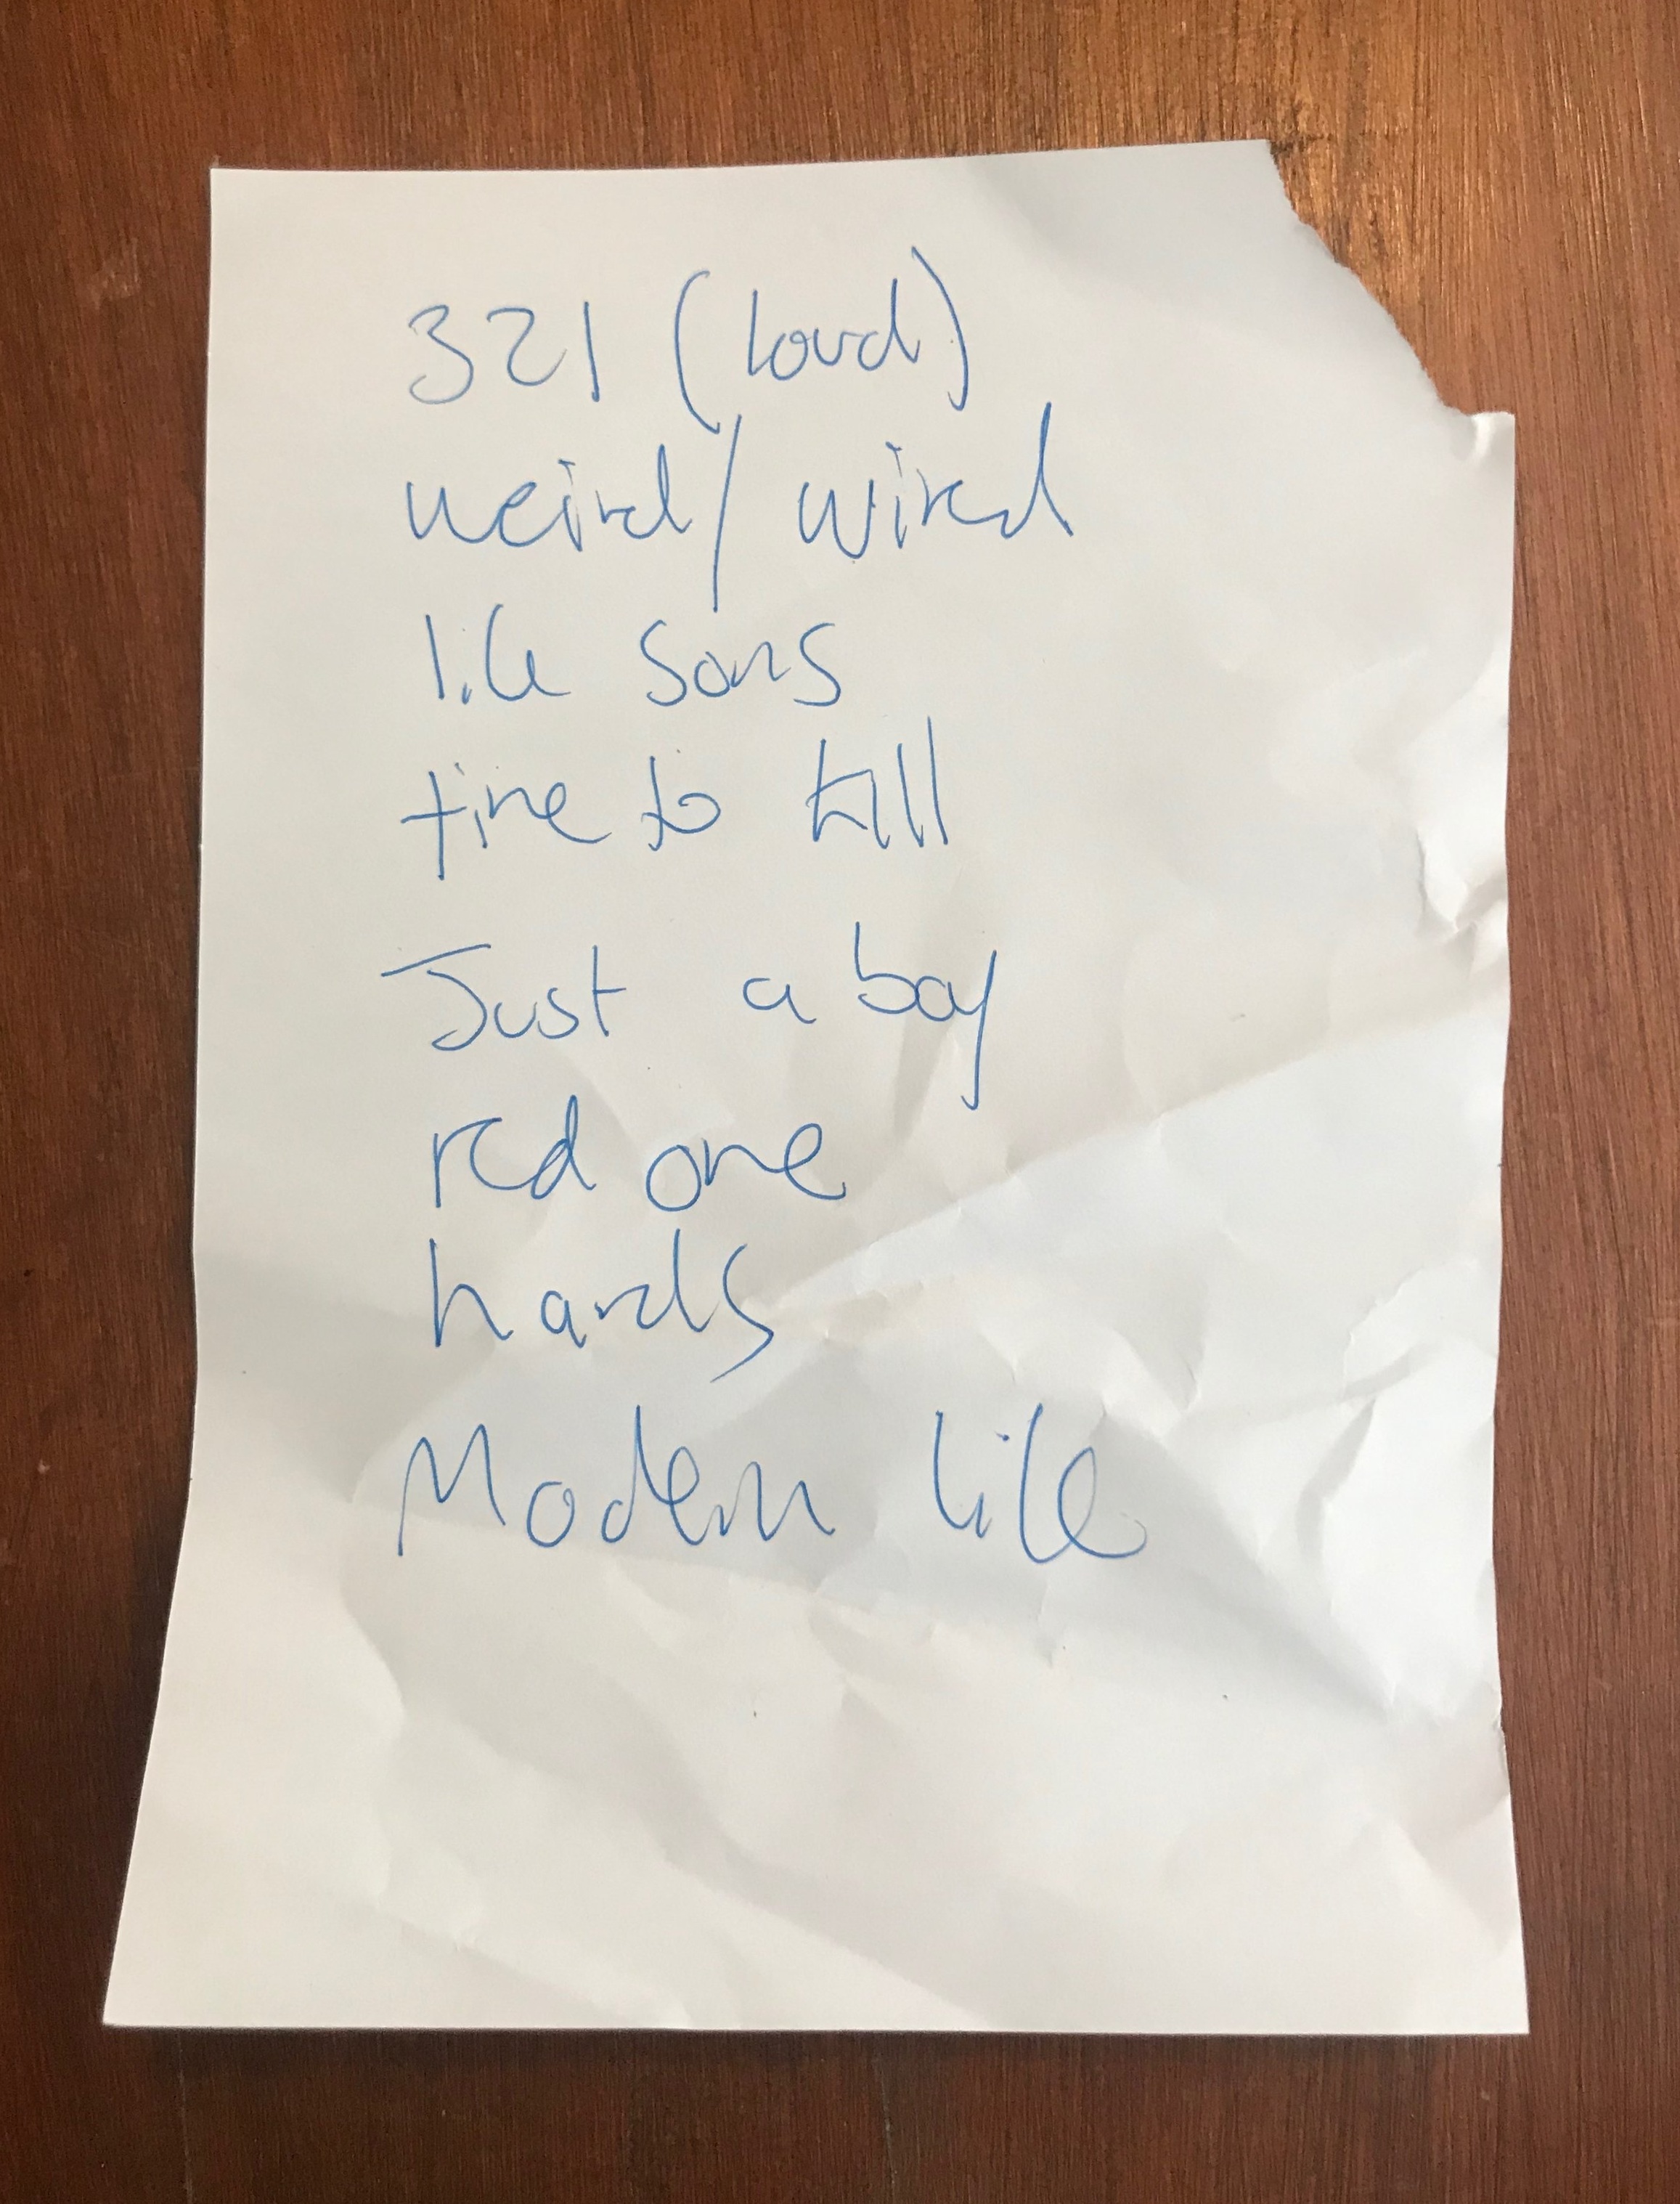 321 (loud)
weird/ wired
life song
time to kill
Just a boy
red one
hands
Modern life